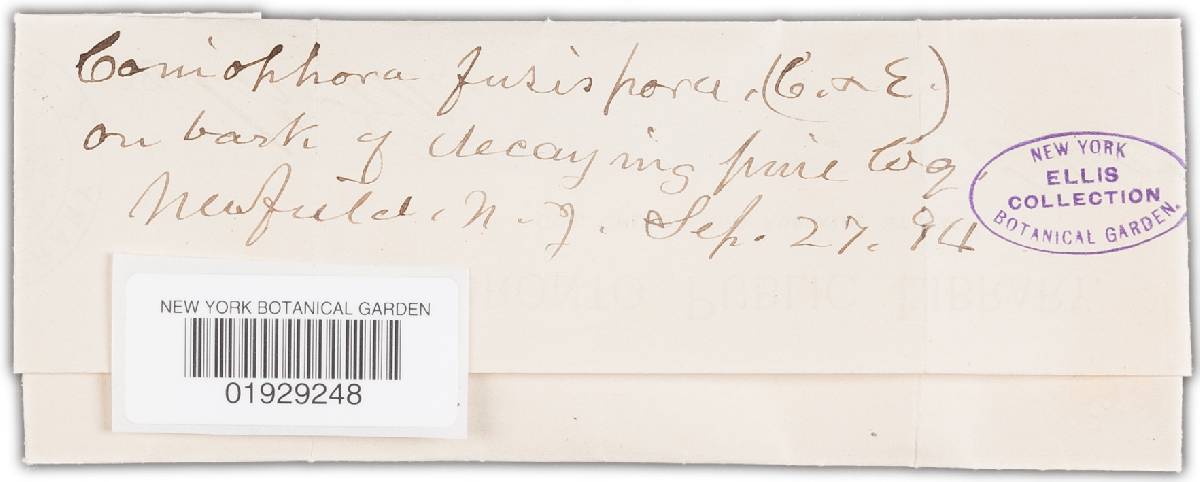 Coniophora fusispora. (C. & E.)
on bark of decaying pine log
Newfield. N. J. Sep. 27. 94
NEW YORK
ELLIS
COLLECTION
BOTANICAL GARDEN.
NEW YORK BOTANICAL GARDEN
01929248